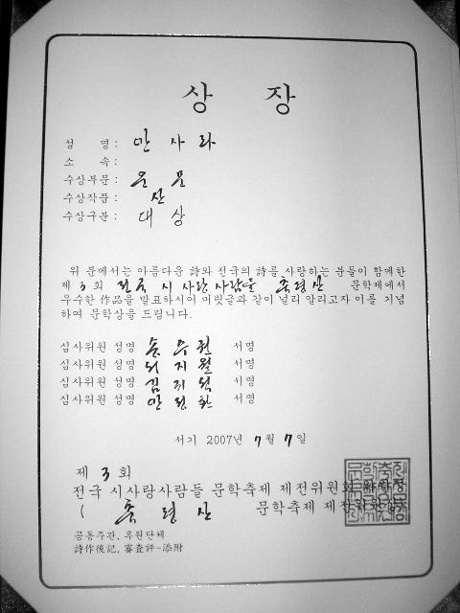 상 장
성 명 : 만 사 라
소 속 :
수상부문 : 운 문
수상작품 : 산
수상구분 : 대 상
위 분에서는 아름다운 詩와 전국의 詩를 사랑하는 분들이 함께한
제 3 회 전국 시 사랑 사람들 축령산 문학제에서
우수한 作品을 발표하시어 머릿글과 같이 널리 알리고자 이를 기념
하여 문학상을 드립니다.
심사위원 성명 송 유 권 서명
심사위원 성명 지 월 서명
심사위원 성명 김 지 석 서명
심사위원 성명 안 정 환 서명
서기 2007년 7월 7일
제 3 회
전국 시사랑사람들 문학축제 제전위원회
( 축 령 산 문학축제 제전
공동주관, 후원단체
詩作後記, 審査評-添附